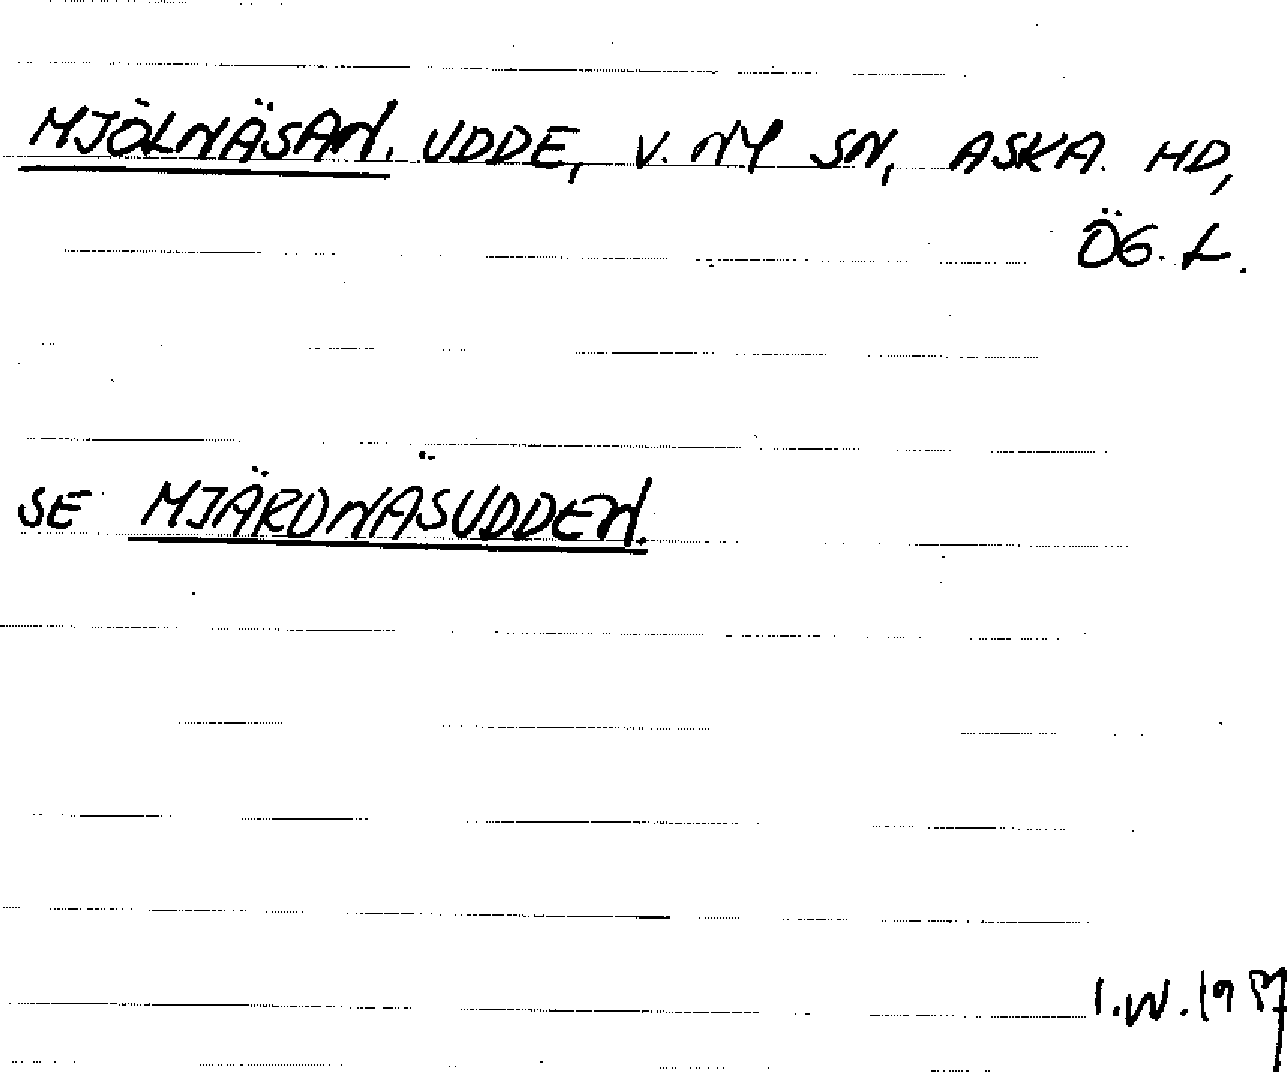 MJÖLNÄSAN. UDDE, V. NY SN, ASKA. HD,
ÖG. L.
SE MJÄRDNÄSUDDEN.
I.W.